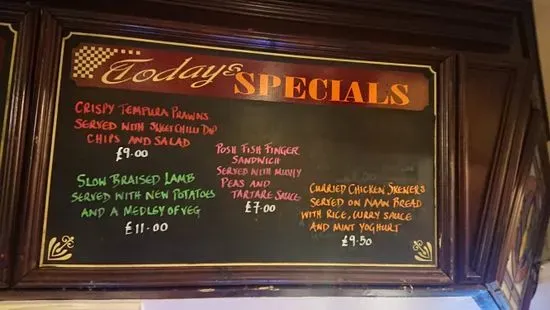 Todays SPECIALS
CRISPY TEMPURA PRAWNS
SERVED WITH SWEET CHILLI DIP
CHIPS AND SALAD
£9.00
SLOW BRAISED LAMB
SERVED WITH NEW POTATOES
AND A MEDLEY OF VEG
£11.00
POSH FISH FINGER
SANDWICH
SERVED WITH MUSHY
PEAS AND
TARTARE SAUCE
£7.00
CURRIED CHICKEN SKEWERS
SERVED ON NAAN BREAD
WITH RICE, CURRY SAUCE
AND MINT YOGHURT
£9.50